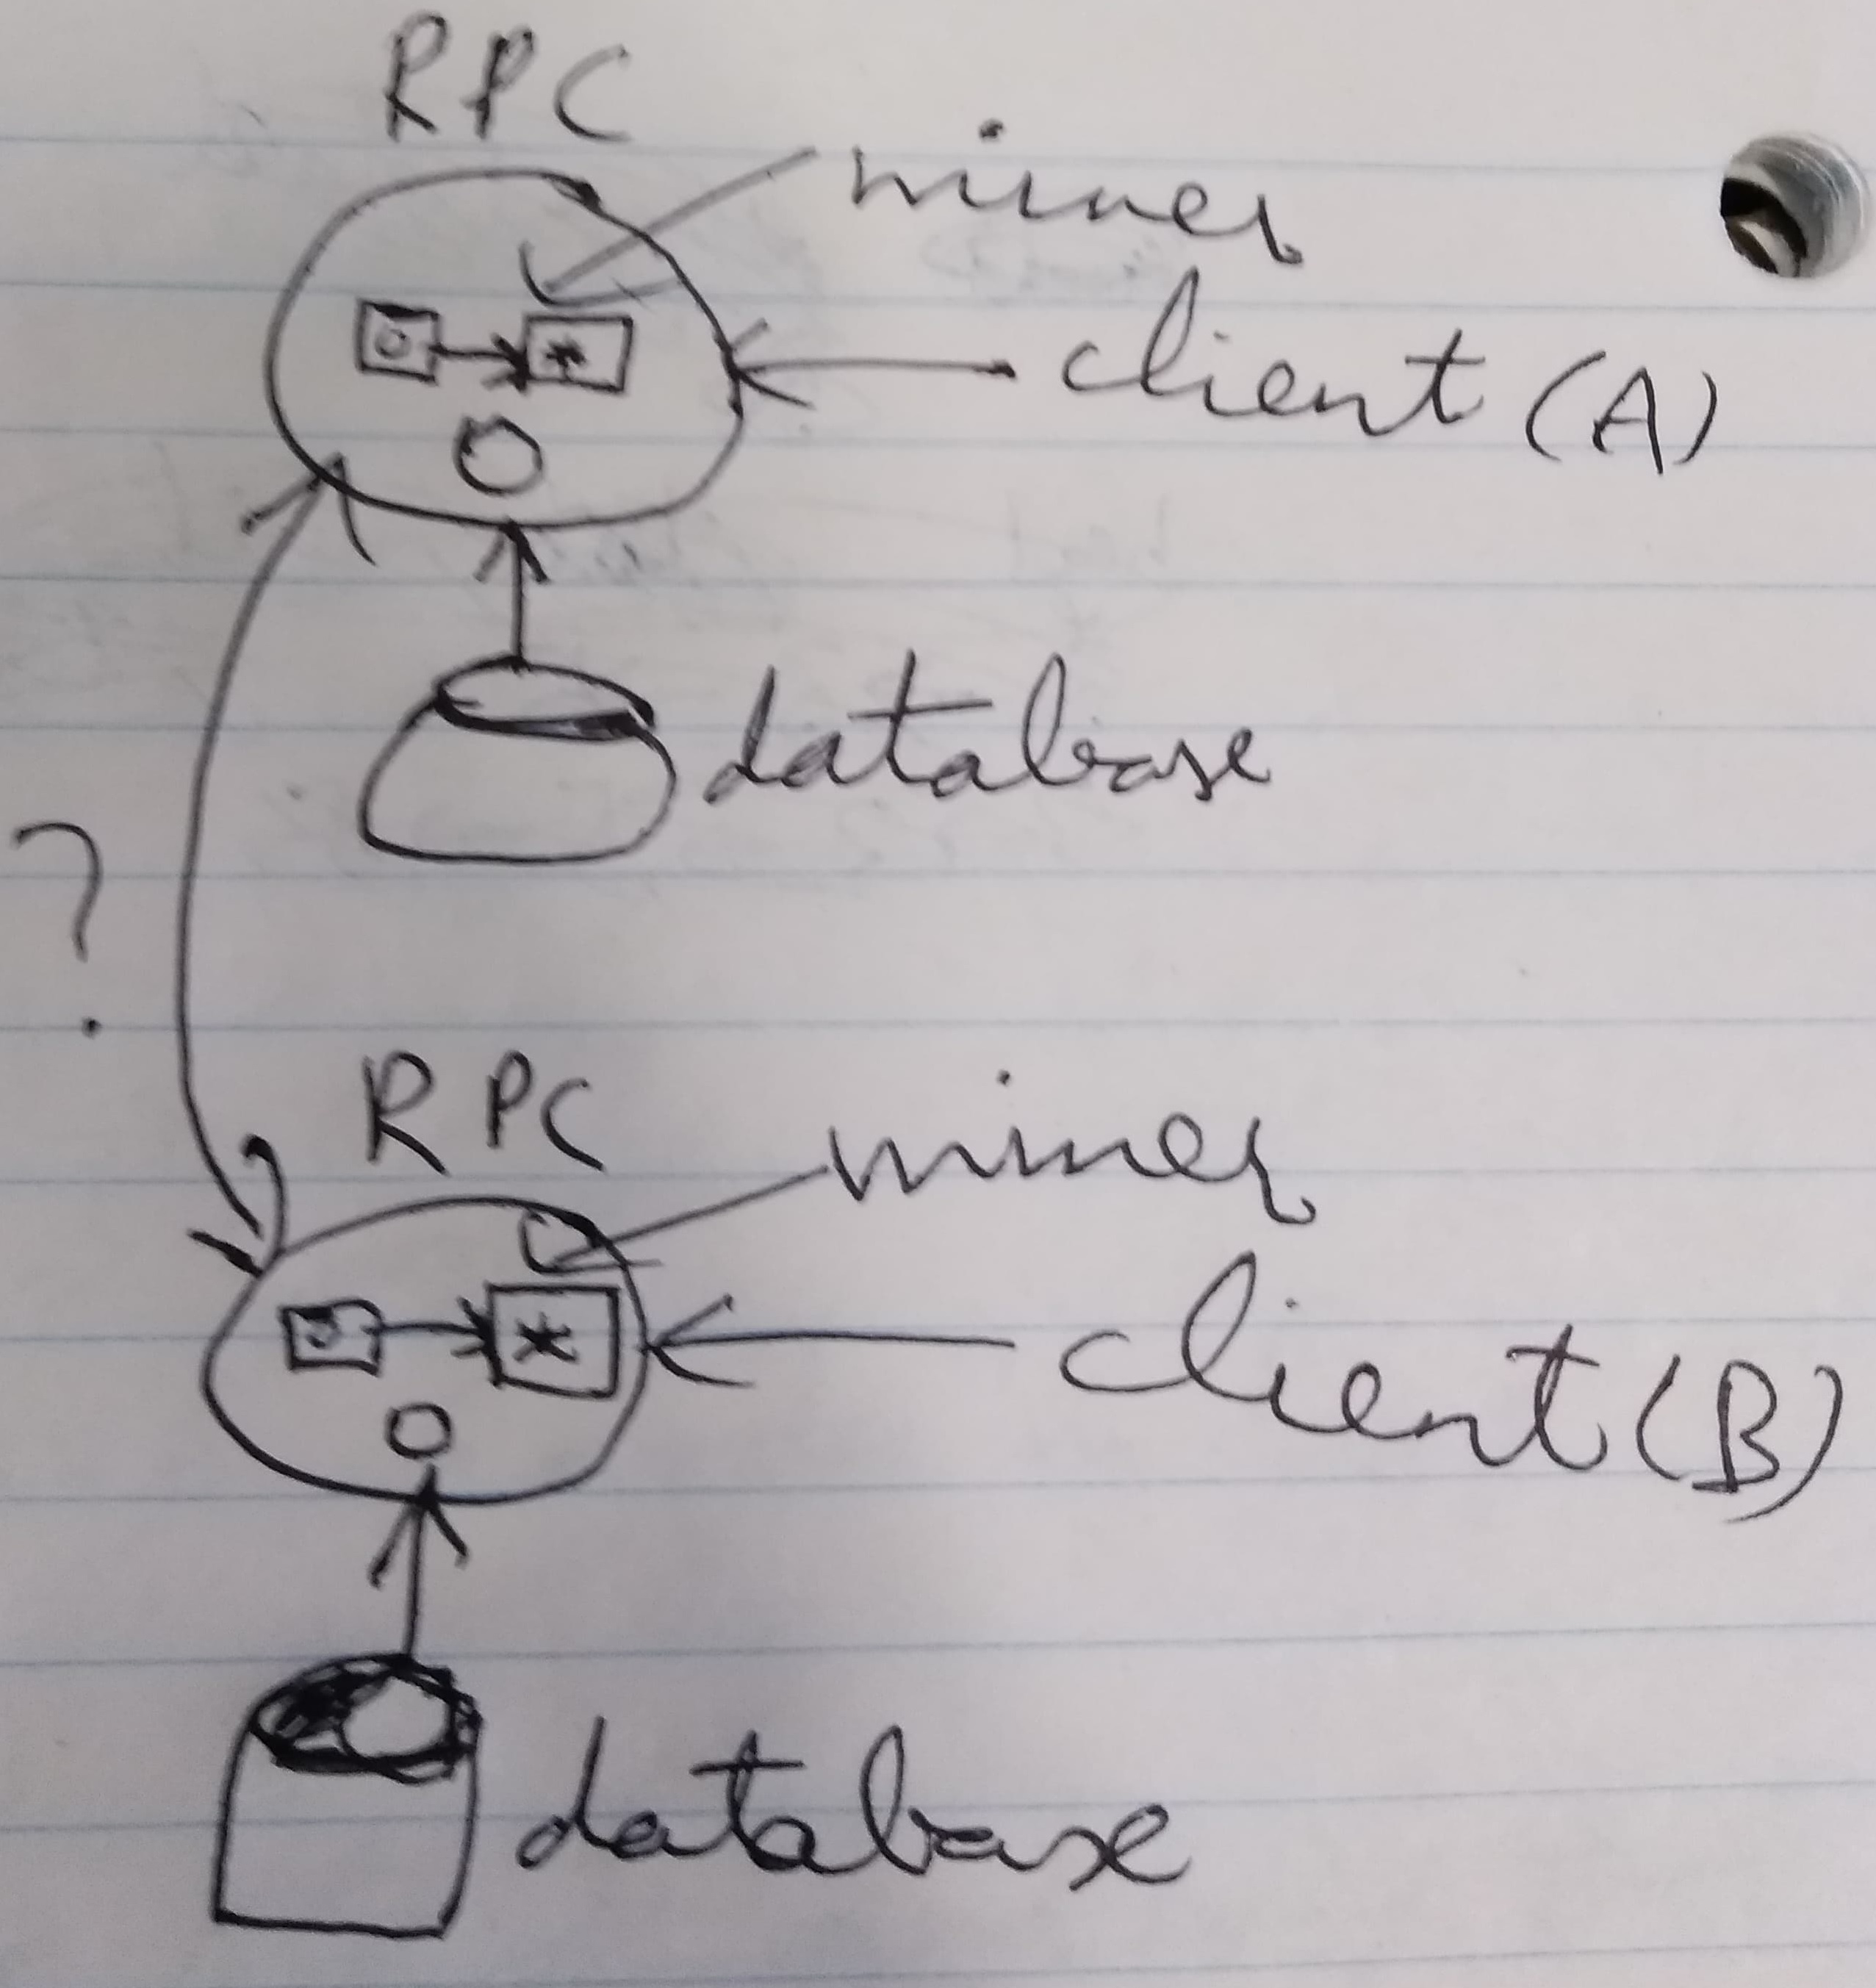 RPC
miner
client (A)
database
?
RPC
miner
client (B)
database